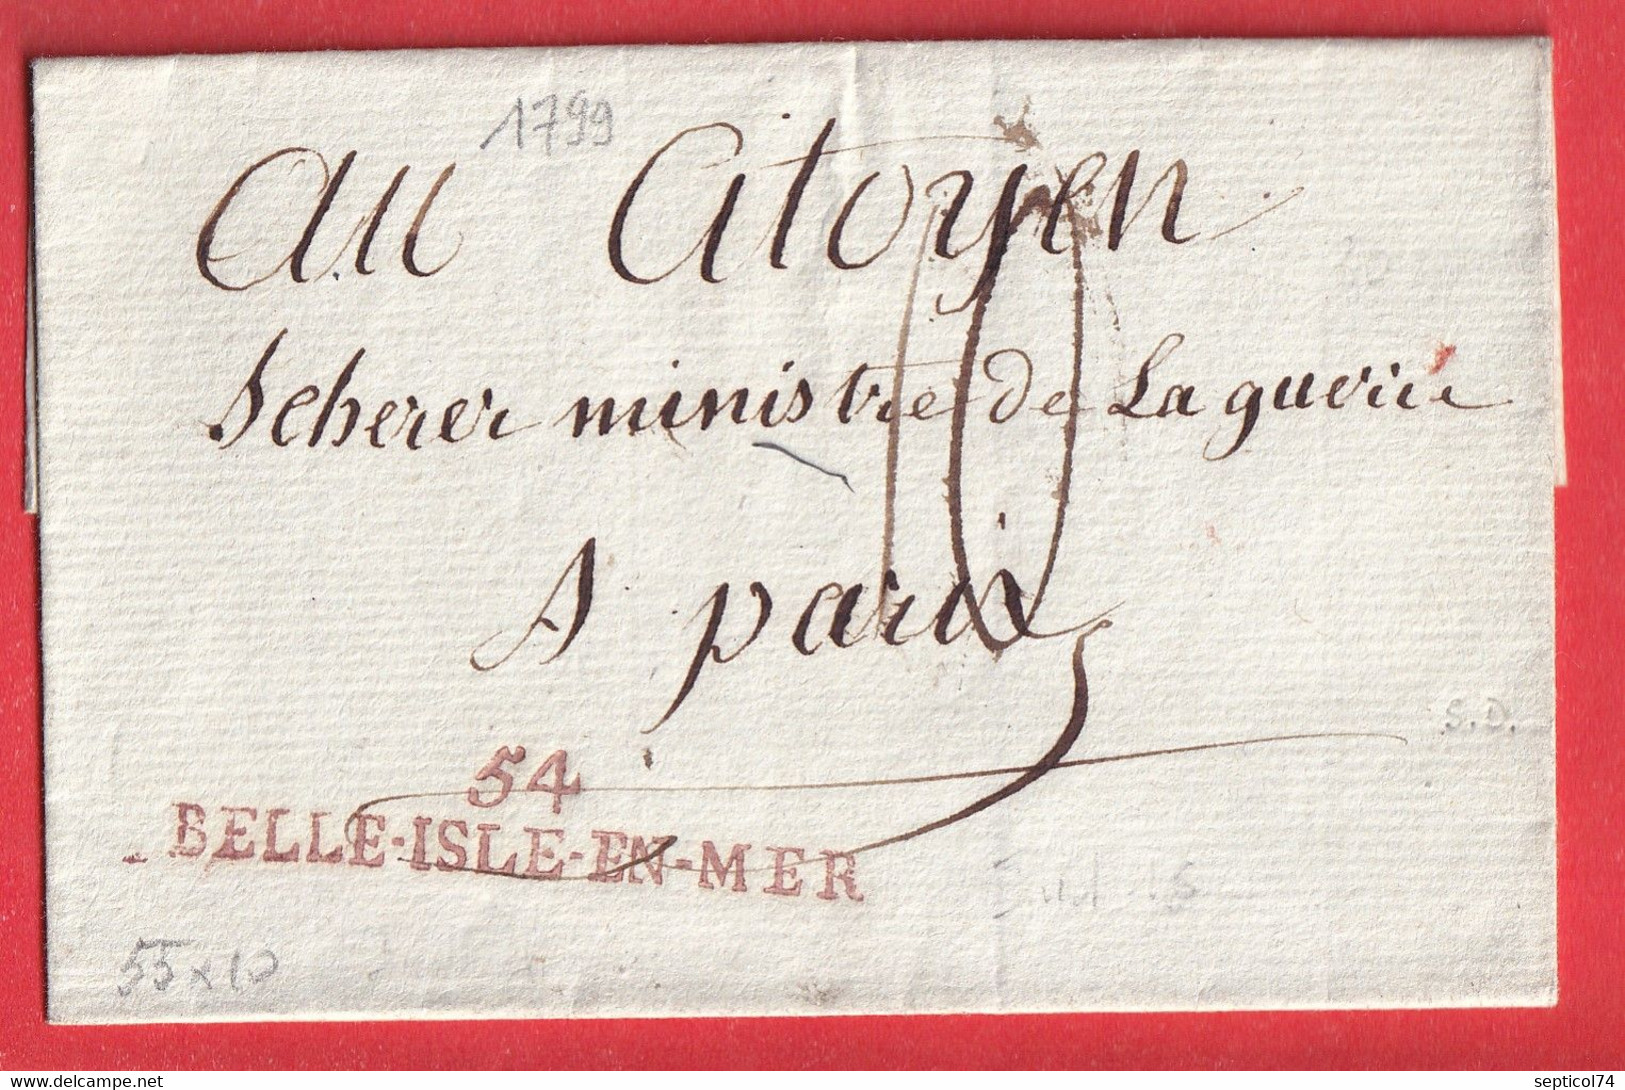 1799
Au Citoyen
Scherer ministre de La guerre
10
A paris
S.D.
54
BELLE-ISLE-EN-MER
55 x 10
delcampe.net
septicol74